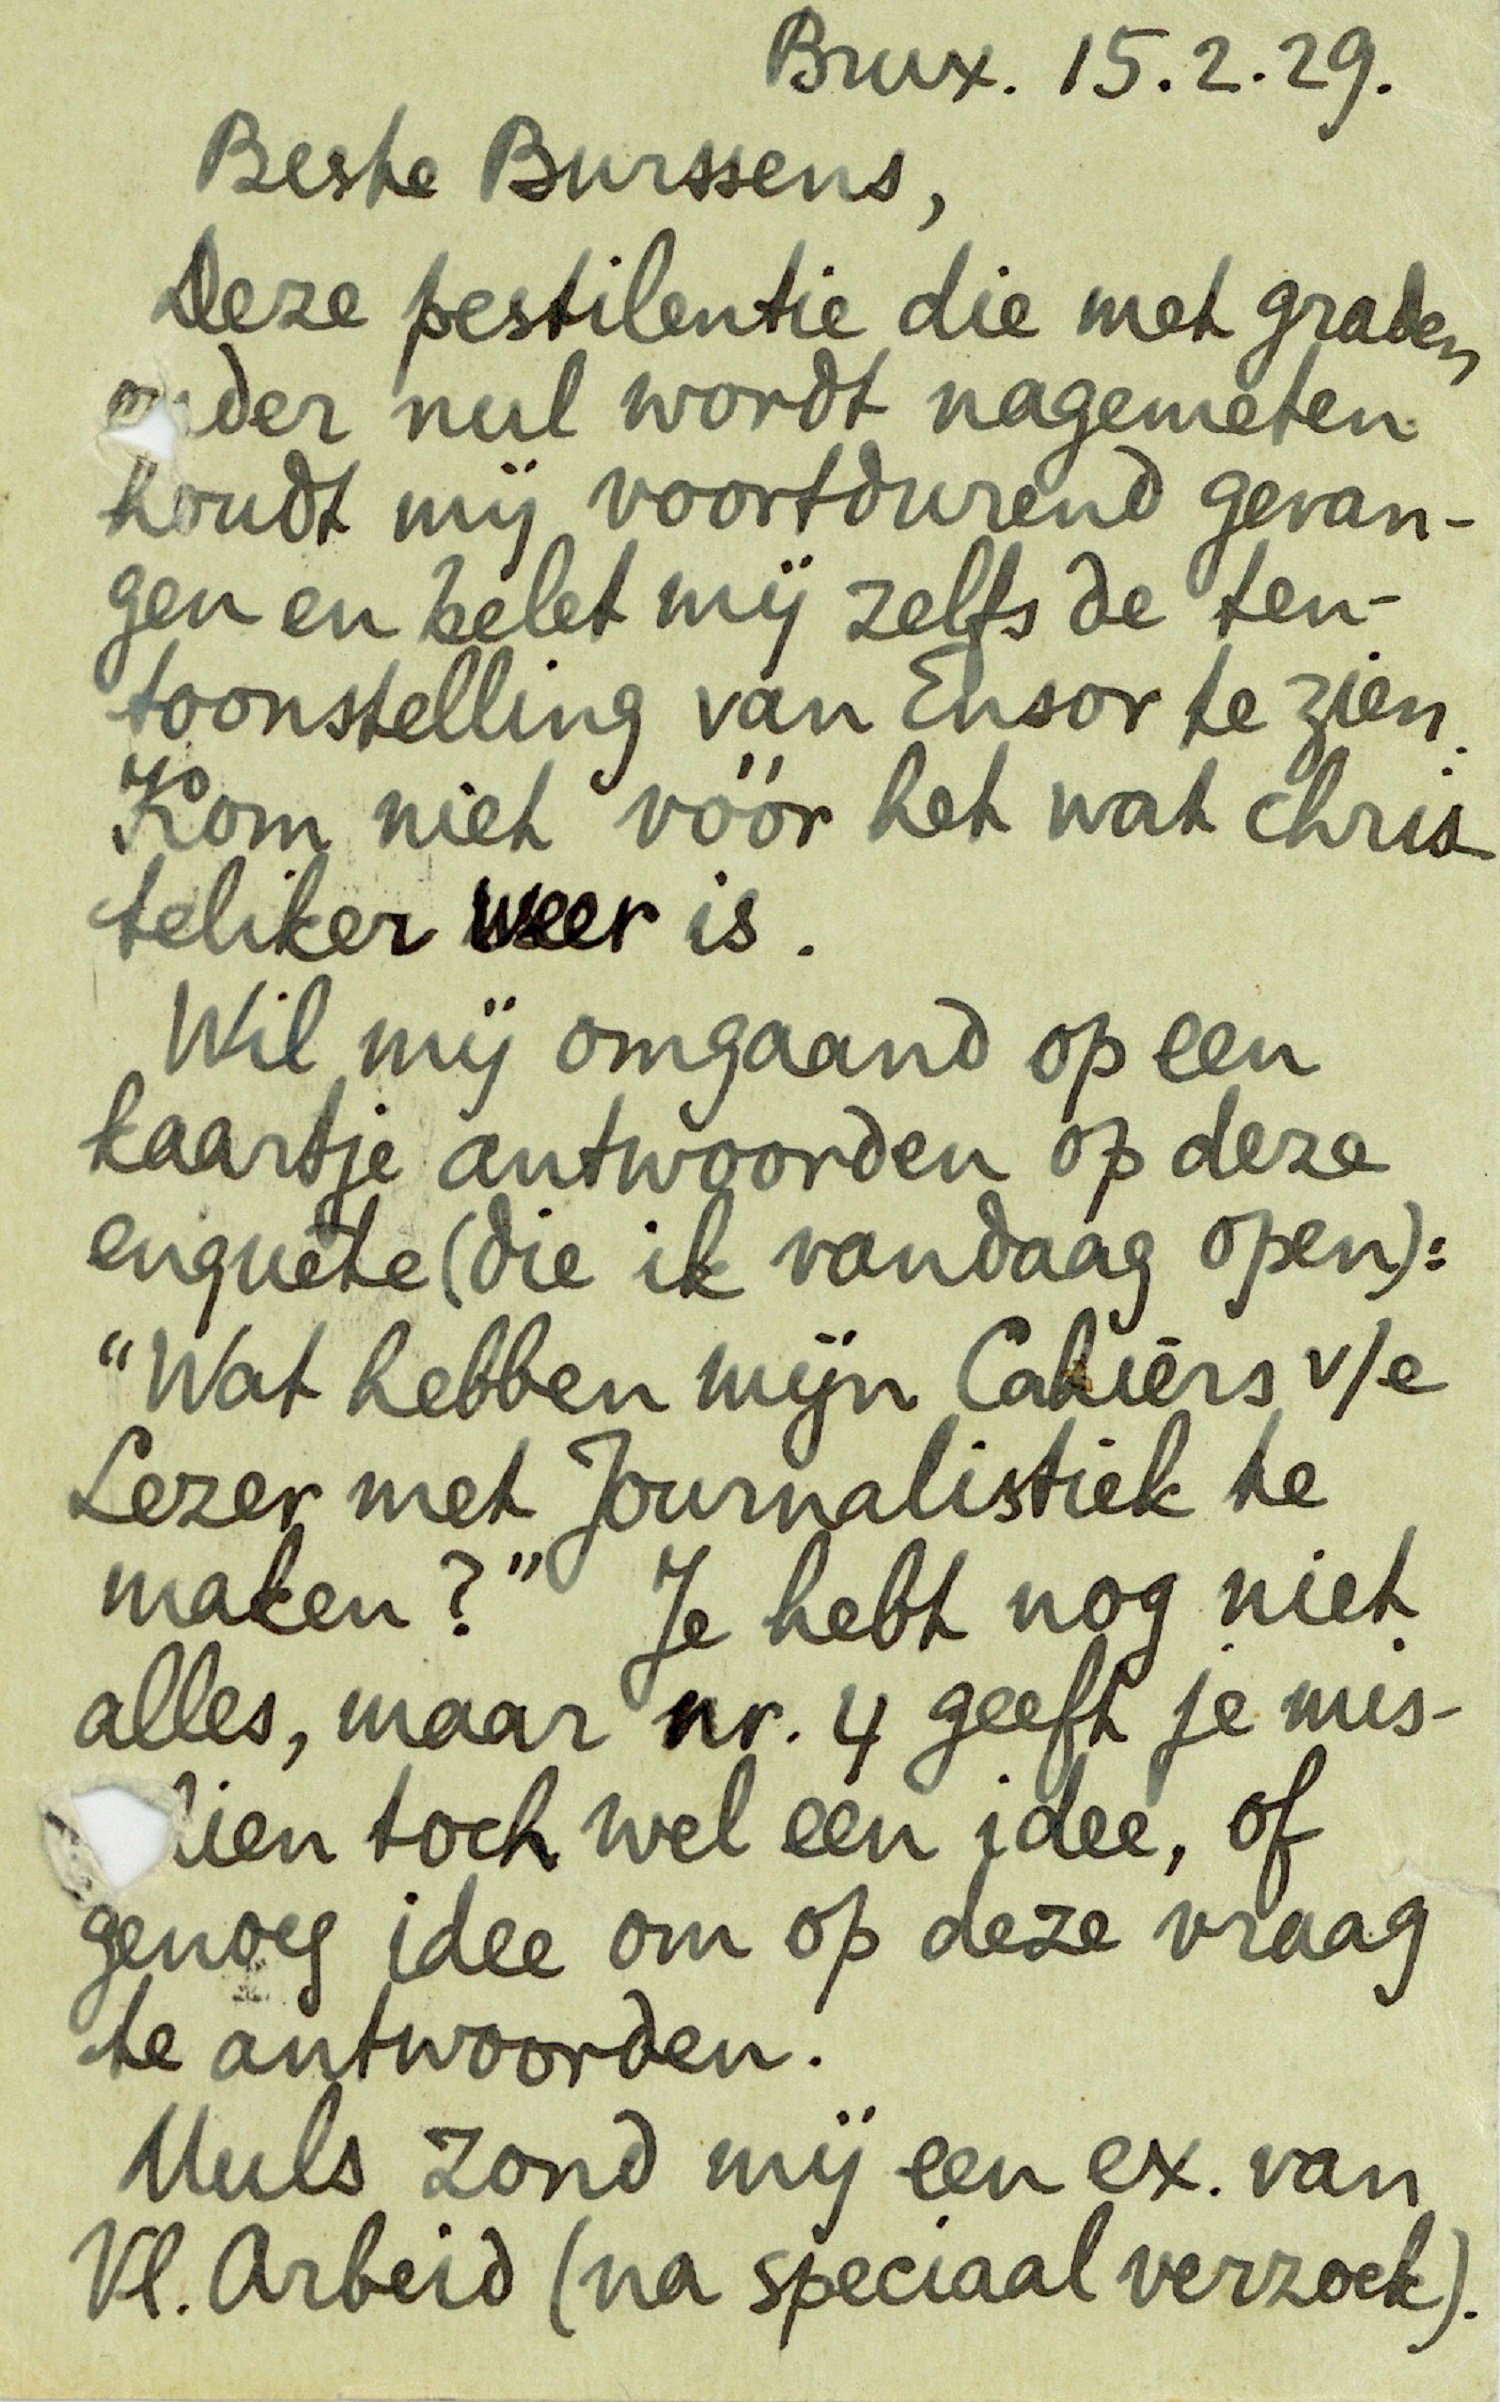 Brux. 15.2.29.
Beste Burssens,
Deze pestilentie die met graden
onder nul wordt nagemeten
houdt mij voortdurend gevan-
gen en belet mij zelfs de ten-
toonstelling van Ensor te zien.
Kom niet vóór het wat chris
teliker weer is.
Wil mij omgaand op een
kaartje antwoorden op deze
enquête (die ik vandaag open):
"Wat hebben mijn Cahiers v/e
Lezer met Journalistiek te
maken?" Je hebt nog niet
alles, maar nr. 4 geeft je mis-
lien toch wel een idee, of
genoeg idee om op deze vraag
te antwoorden.
Muls zond mij een ex. van
Vl. Arbeid (na speciaal verzoek).